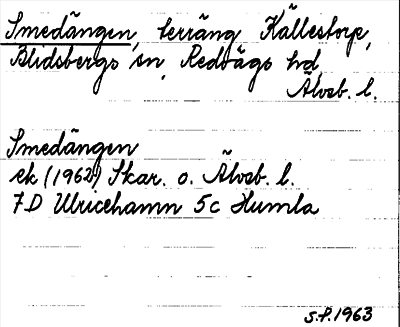 Smedängen, terräng Källestorp,
Blidsbergs sn, Redvägs hd,
Älvsb. l.
Smedängen
ek (1962) Skar. o. Älvsb. l.
7D Ulricehamn 5c Humla
S.P. 1963